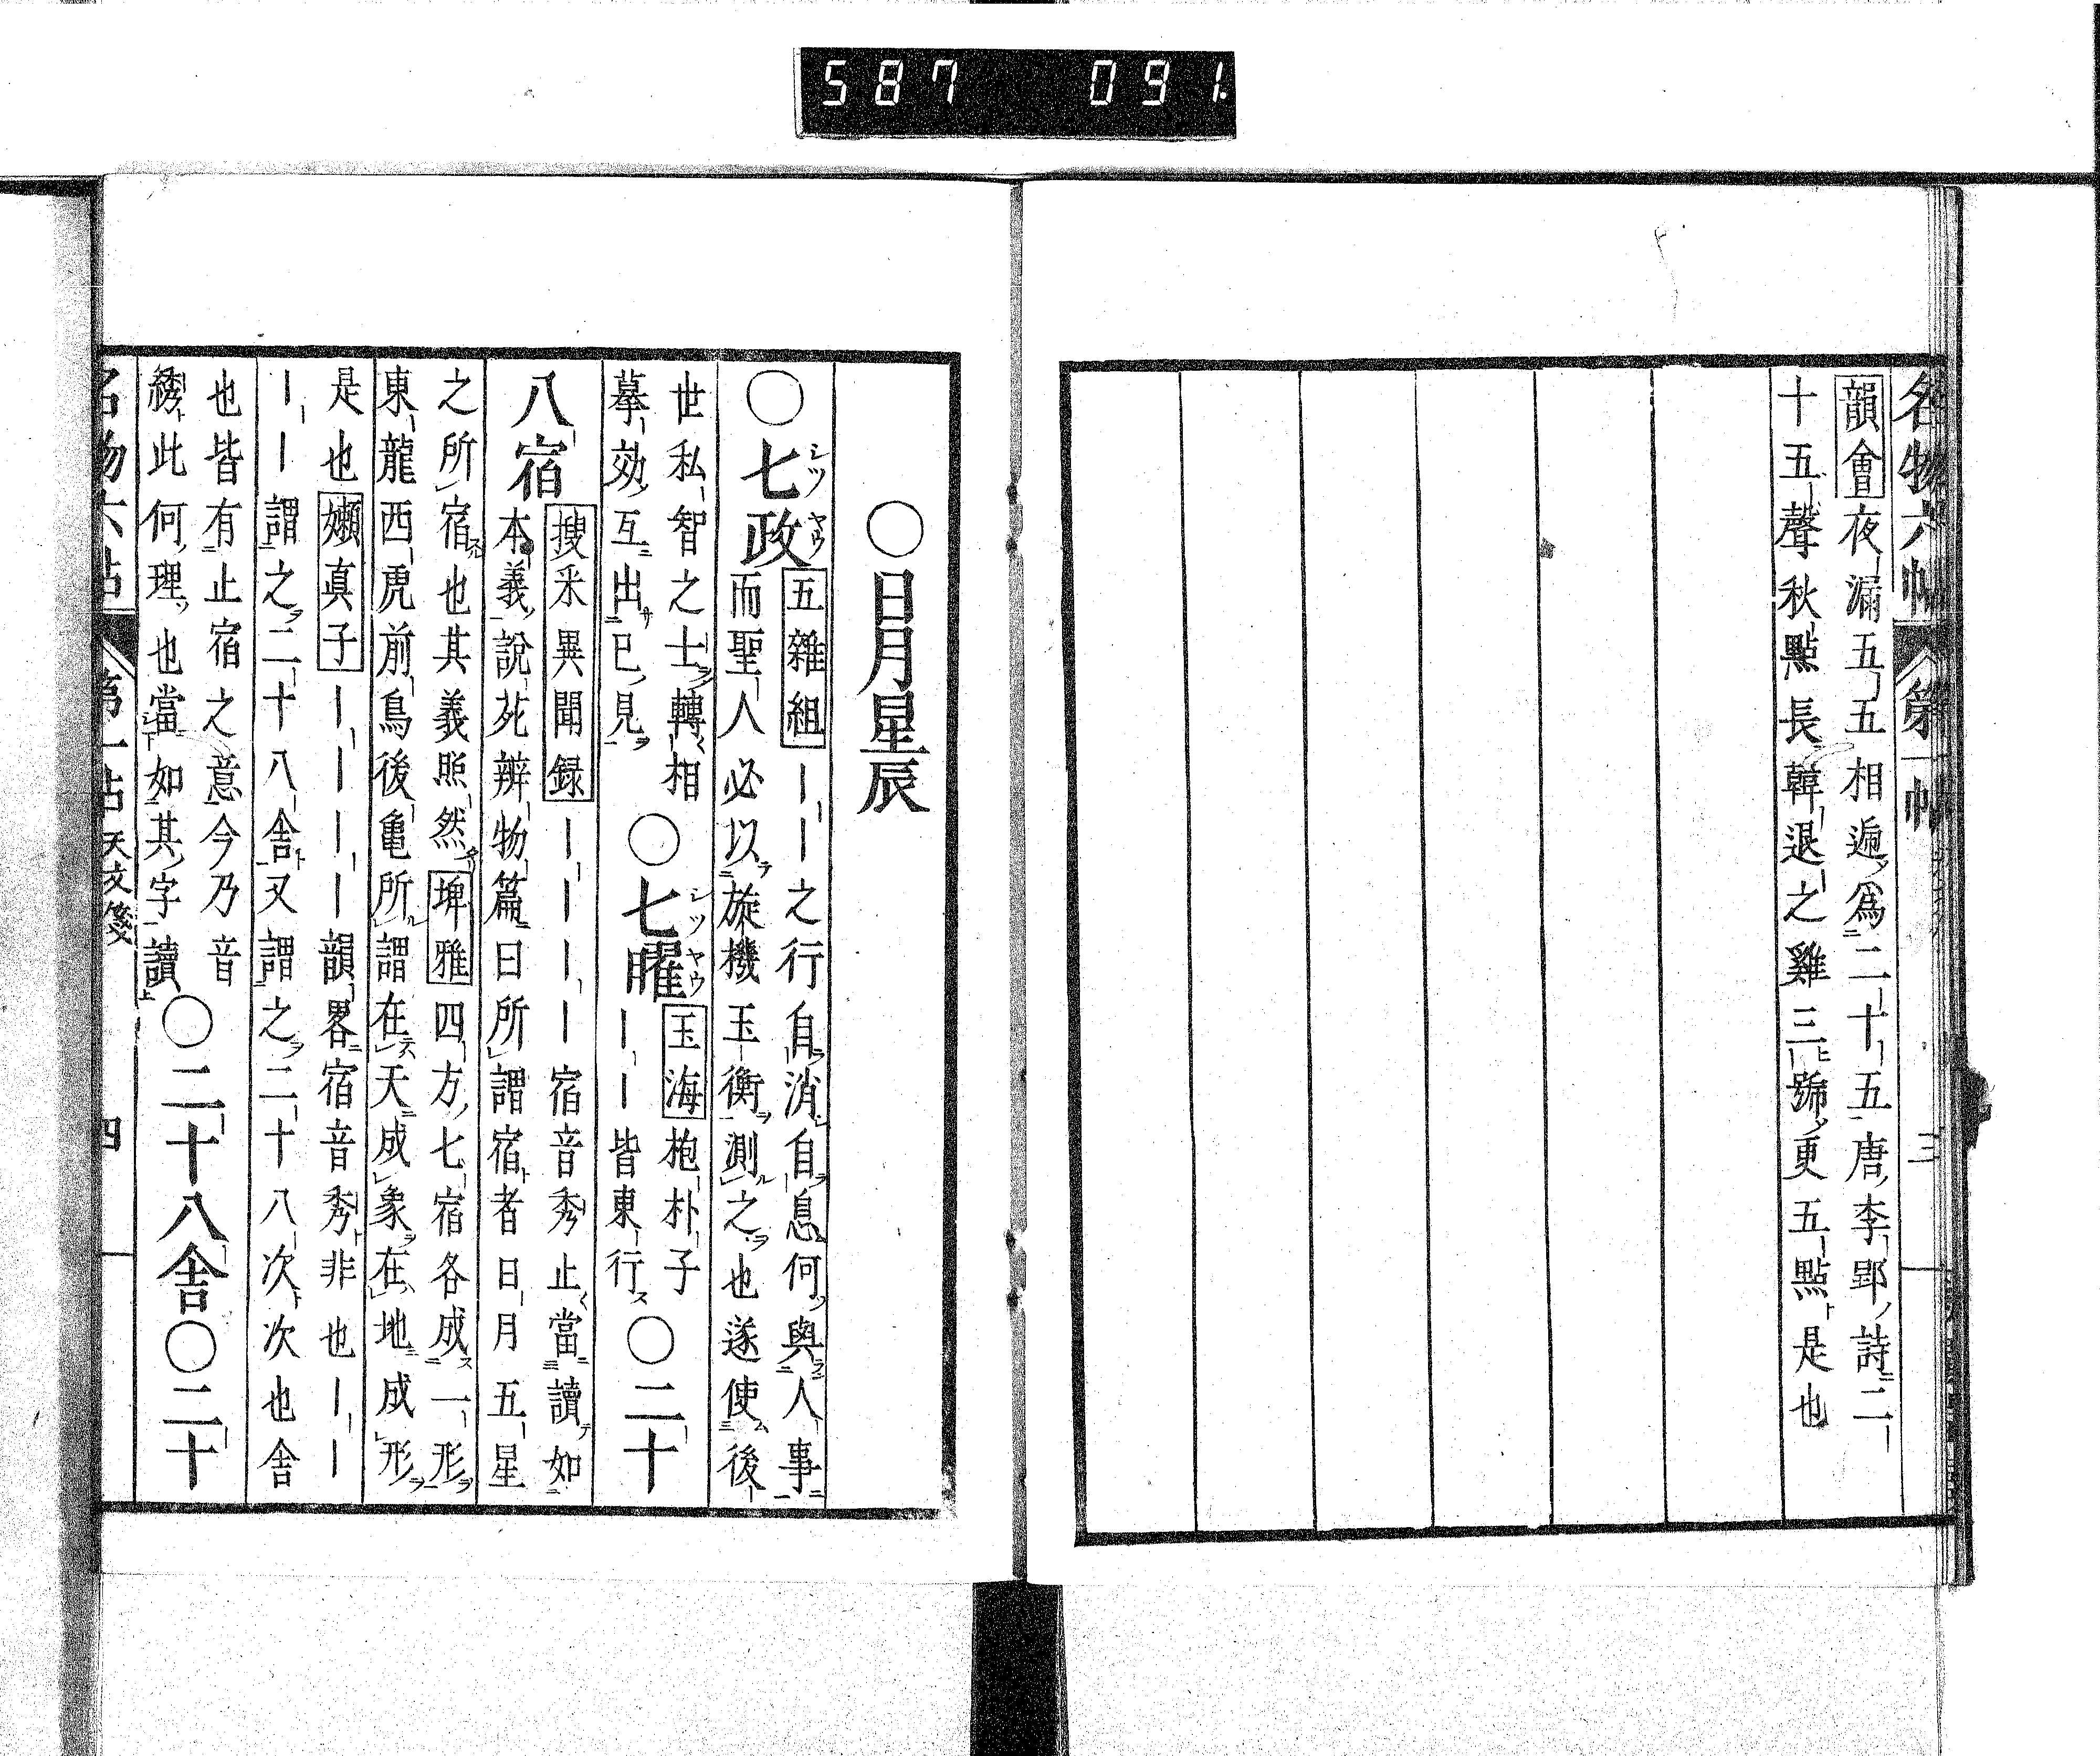 587 091.
名物六帖 第一帖 三
韻會夜漏五五相遞爲二十五唐李郢詩二
十五聲秋點長韓退之雞三號更五點是也
○日月星辰
○七政 シツ
五雜組〡〡之行自消自息何與人事
而聖人必以旋機玉衡測之也遂使後
世私智之士轉相
摹効互出已見
○七曜 シツヤウ
玉海〡〡抱朴子
〡〡皆東行
○二十
八宿
搜采異聞録〡〡〡〡宿音秀止當讀如
本義說苑辨物篇曰所謂宿者日月五星
之所宿也其義照然埤雅四方七宿各成一形
東龍西虎前鳥後亀所謂在天成象在地成形
是也嬾真子〡〡〡〡韻畧宿音秀非也〡〡
〡〡謂之二十八舍又謂之二十八次次也舍
也皆有止宿之意今乃音
綉此何理也當如其字讀
○二十八舍○二十
名物六帖 第一帖 天文箋 四